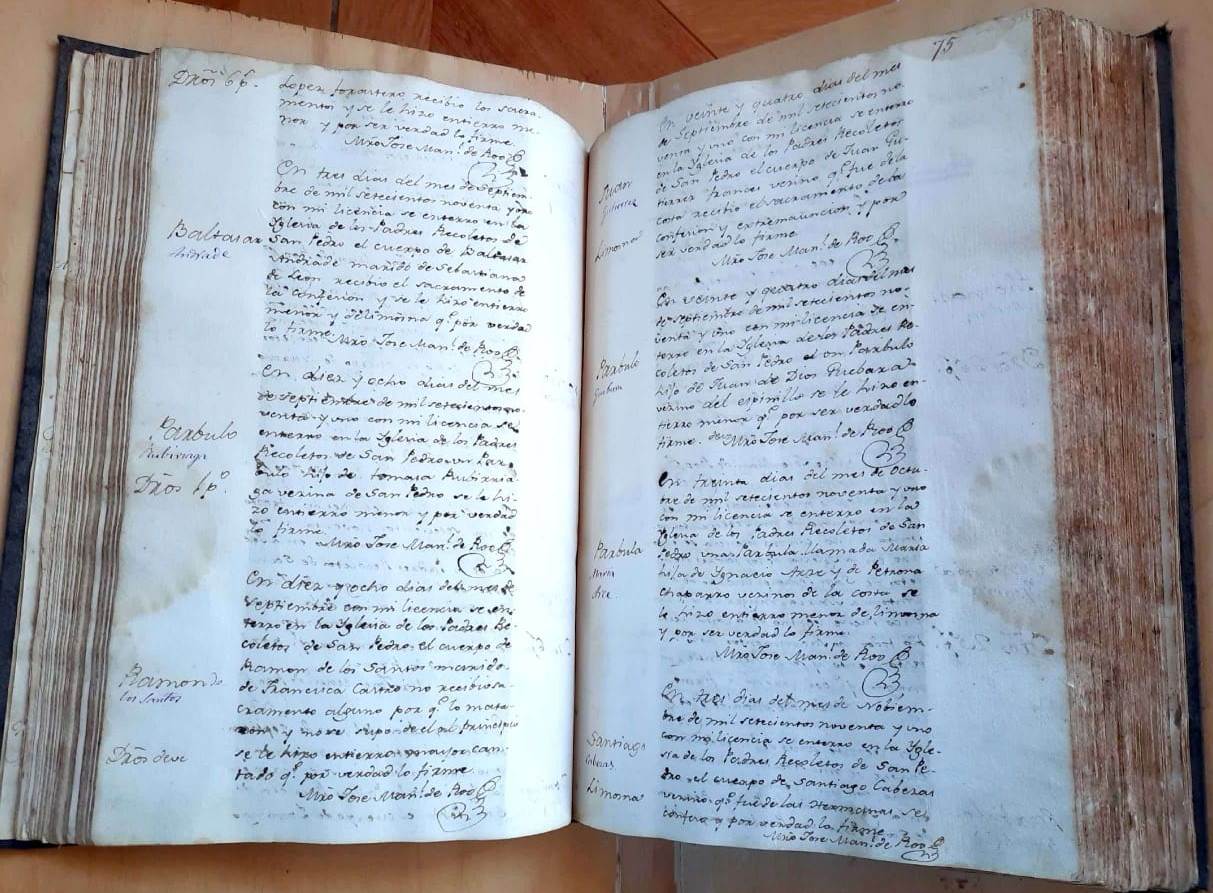 Dros 6 p.
Lopez forastero recibio los sacra-
mentos y se le hizo entierro me-
nor y por ser verdad lo firme
Mro Jose Man.l de Roo
Baltasar
Andrade
En tres dias del mes de Septiem-
bre de mil setecientos noventa y uno
con mi licencia se enterro en la
Yglesia de los Padres Recoletos de
San Pedro el cuerpo de Baltasar
Andrade marido de Sebastiana
de Leon recibio el sacramento de
la Confesion y se le hizo entierro
menor y de limosna q.e por verdad
lo firme Mro Jose Man.l de Roo
Parbulo
Dros 1 p.o
En diez y ocho dias del mes
de Septiembre de mil setecientos no-
venta y uno con mi licencia se
enterro en la Yglesia de los Padres
Recoletos de San Pedro un Par-
bulo hijo de tomasa
vezina de San Pedro se le hi-
zo entierro menor y por verdad
lo firme
Mro Jose Man.l de Roo
Ramon de
los Santos
Dros deve
En diez y ocho dias del mes de
Septiembre con mi licencia se en-
terro en la Yglesia de los Padres Re-
coletos de San Pedro el cuerpo de
Ramon de los Santos marido
de Francisca Castro no recibio sa-
cramento alguno por q.e lo mata-
ron y no se supo de el al principio
se le hizo entierro mayor can-
tado q.e por verdad lo firme
Mro Jose Man.l de Roo
75
Juan
Limosna
En veinte y quatro dias del mes
de Septiembre de mil setecientos no-
venta y uno con mi licencia se enterro
en la Yglesia de los Padres Recoletos
de San Pedro el cuerpo de Juan Gu-
tierrez frances vezino q.e fue de la
costa recibio el sacramento de la
Confesion y extremauncion y por
ser verdad lo firme
Mro Jose Man.l de Roo
Parbulo
En veinte y quatro dias del mes
de Septiembre de mil setecientos no-
venta y uno con mi licencia se en-
terro en la Yglesia de los Padres Re-
coletos de San Pedro un Parbulo
hijo de Juan de Dios Guebara
vezino del espinillo se le hizo en-
tierro menor q.e por ser verdad lo
firme Mro Jose Man.l de Roo
Parbula
Maria
Arze
En treinta dias del mes de Octu-
bre de mil setecientos noventa y uno
con mi licencia se enterro en la
Yglesia de los Padres Recoletos de San
Pedro una Parbula llamada Maria
hija de Ygnacio Arze y de Petrona
Chaparro vezinos de la costa se
le hizo entierro menor de limosna
y por ser verdad lo firme
Mro Jose Man.l de Roo
Santiago
Cabezas
Limosna
En tres dias del mes de Nobiem-
bre de mil setecientos noventa y uno
con mi licencia se enterro en la Ygle-
sia de los Padres Recoletos de San Pe-
dro el cuerpo de Santiago Cabezas
vezino q.e fue de las Hermanas se
confeso y por verdad lo firme
Mro Jose Man.l de Roo